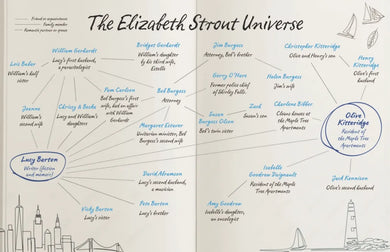 The Elizabeth Strout Universe
Friend or acquaintance
Family member
Romantic partner or spouse
William Gerhardt
Lucy's first husband,
a parasitologist
Bridget Gerhardt
William's daughter
by his third wife,
Estelle
Jim Burgess
Attorney, Bob's brother
Christopher Kitteridge
Olive and Henry's son
Lois Bubar
William's half
sister
Pam Carlson
Bob Burgess's first
wife, had an affair
with William
Gerhardt
Bob Burgess
Attorney
Gerry O'Hare
Former police chief
of Shirley Falls
Helen Burgess
Jim's wife
Henry
Kitteridge
Olive's first
husband
Joanne
William's
second wife
Chrissy & Becka
Lucy and William's
daughters
Margaret Estaver
Unitarian minister, Bob
Burgess's second wife
Susan
Burgess Olson
Bob's twin sister
Zack
Susan's son
Charlene Bibber
Cleans houses at
the Maple Tree
Apartments
Olive
Kitteridge
Resident of
the Maple Tree
Apartments
Lucy Barton
Writer (fiction
and memoir)
David Abramson
Lucy's second husband,
a musician
Isabelle
Goodrow Daignault
Resident of the Maple
Tree Apartments
Jack Kennison
Olive's second husband
Vicky Barton
Lucy's sister
Pete Barton
Lucy's brother
Amy Goodrow
Isabelle's daughter,
an oncologist